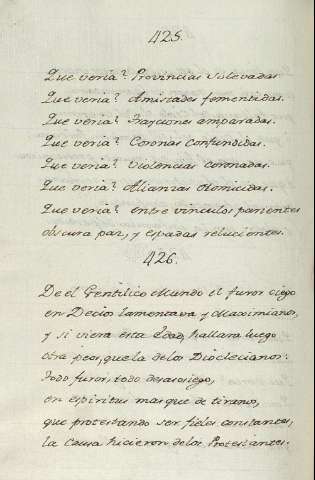 425.
Que veria? Provincias sulevadas
Que veria? Amistades fomentidas.
Que veria? Frayciones amparadas.
Que veria? Coronas confundidas.
Que veria? Violencias coronadas.
Que veria? Alianzas Omicidas.
Que veria? entre vinculos parientes
obscura paz, y espadas relucientes.
426.
De el Gentilico Mundo el furor ciego
en Decios lamentava y Maximianos,
y si viera esta Edad, hallara luego
otra peor, que la de los Dioclecianos:
todo furor, todo desasosiego,
en espiritus mas que de tiranos,
que protestando ser fieles constantes,
la Causa hicieron de los Protestantes.